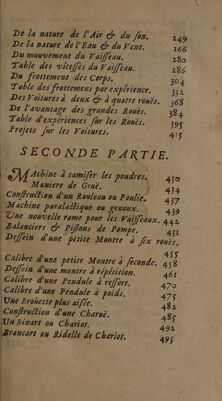 De la nature de l'Air & du son. 249
De la nature de l'Eau & du Vent. 266
Du mouvement du Vaisseau. 280
Table des vitesses du Vaisseau. 286
Du frottement des Corps. 304
Table des frottemens par expérience. 332
Des Voitures à deux & à quatre rouës. 368
De l'avantage des grandes Rouës. 384
Table d'expériences sur les Rouës. 395
Projets sur les Voitures. 415
SECONDE PARTIE.
Machine à tamiser les poudres. 430
Maniere de Gruë. 434
Construction d'un Rouleau ou Poulie. 437
Machine paralactique ou genoux. 439
Une nouvelle rame pour les Vaisseaux. 442
Balanciers & Pistons de Pompe. 451
Dessein d'une petite Montre à six rouës. 455
Calibre d'une petite Montre à seconde. 458
Dessein d'une montre à répétition. 461
Calibre d'une Pendule à ressort. 470
Calibre d'une Pendule à poids. 475
Une Broüette plus aisée. 482
Construction d'une Charuë. 485
Un Binart ou Chariot. 492
Brancart ou Ridelle de Chariot. 495